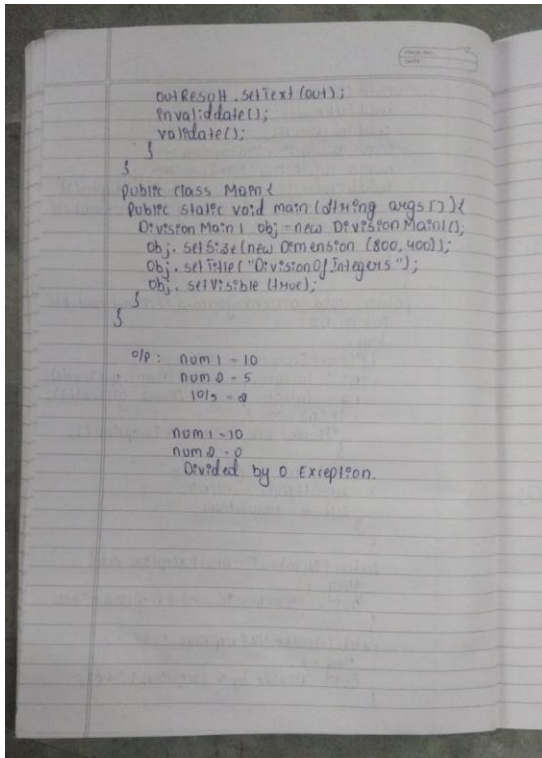 PAGE NO:
DATE:
outResult.setText(out);
invaliddate();
validate();
}
}
public class Main{
public static void main (String args[]){
DivisionMain1 obj = new DivisionMain1();
obj.setSize(new Dimension (800,400));
obj.setTitle("DivisionOfIntegers");
obj.setVisible (true);
}
}
o/p : num1 = 10
num2 = 5
10/5 = 2
num1 = 10
num2 = 0
Divided by 0 Exception.